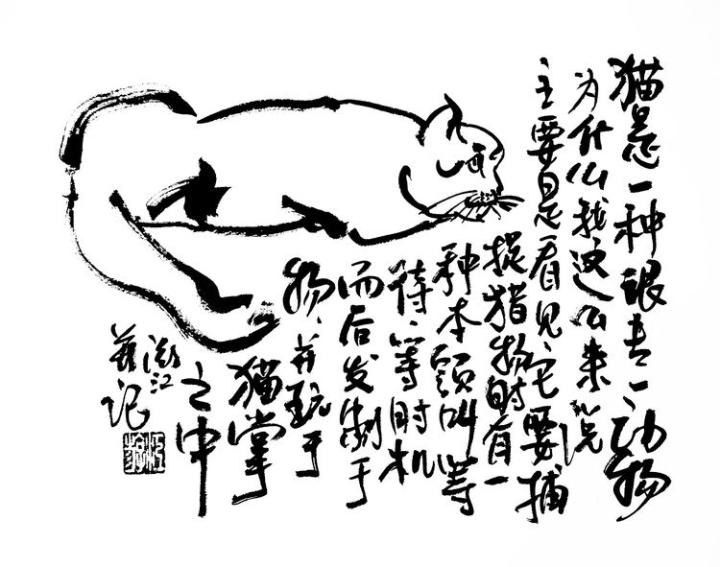 猫是一种动物
为什么我这么来说
主要是看见它要捕
捉猎物时有一
种本领叫等
待、等时机
而后发制于
物、并玩于
猫掌
之中
江
记